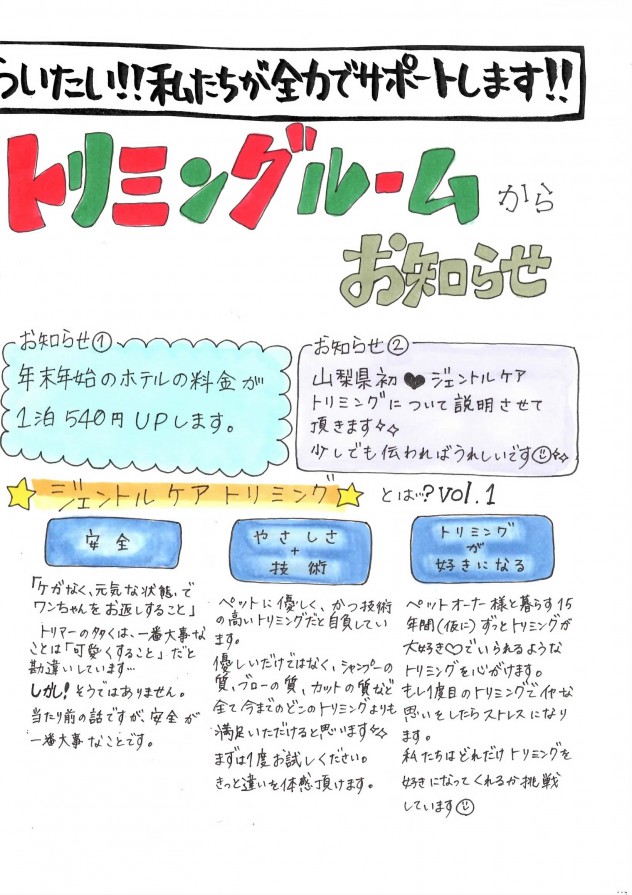 ういたい!!私たちが全力でサポートします!!
トリミングルームから
お知らせ
お知らせ①
年末年始のホテルの料金が
1泊540円UPします。
お知らせ②
山梨県初♥ジェントルケア
トリミングについて説明させて
頂きます✧✧
少しでも伝わればうれしいです☺✧✧
☆ジェントルケアトリミング☆とは…?vol.1
安全
「ケガなく、元気な状態で
ワンちゃんをお返しすること」
トリマーの多くは、一番大事な
ことは「可愛くすること」だと
勘違いしています…
しかし!そうではありません。
当たり前の話ですが安全が
一番大事なことです。
やさしさ
+
技術
ペットに優しく、かつ技術
の高いトリミングだと自負してい
ます。
優しいだけではなく、シャンプーの
質、ブローの質、カットの質など
全て今までのどこのトリミングよりも
満足いただけると思います✧✧
まずは1度お試しください。
きっと違いを体感頂けます。
トリミング
が
好きになる
ペットオーナー様と暮らす15
年間(仮に)ずっとトリミングが
大好き♡でいられるような
トリミングを心がけます。
もし1度目のトリミングでイヤな
思いをしたらストレスになり
ます。
私たちはどれだけトリミングを
好きになってくれるか挑戦
しています☺